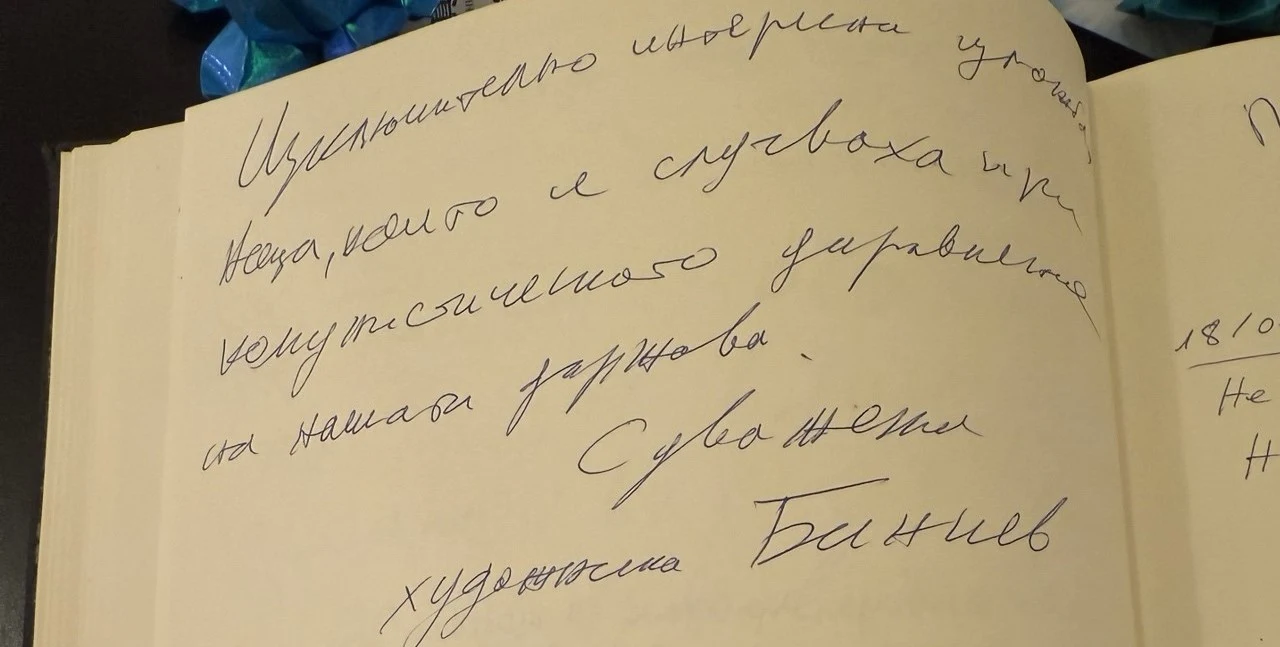 Изключително интересна изложба
Неща, които се случваха при
комунистическото управление
на нашата държава.
С уважение
художника
18/0
Не
Н